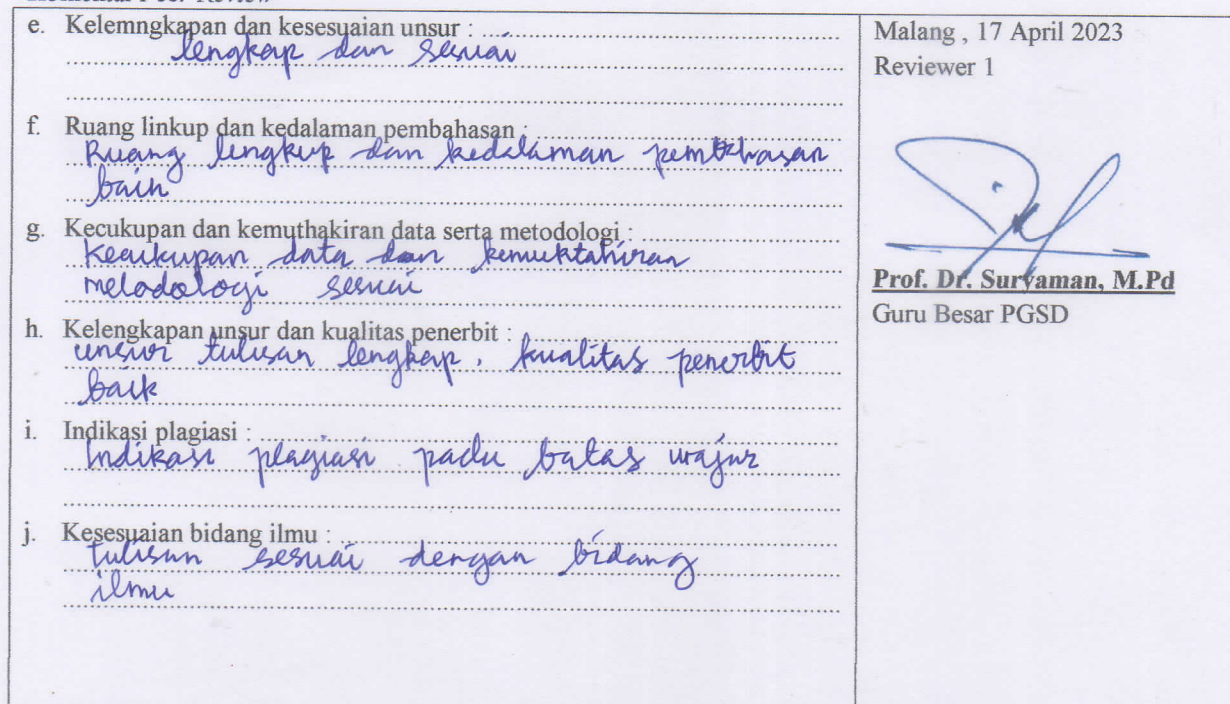 e. Kelemngkapan dan kesesuaian unsur :
lengkap dan sesuai
f. Ruang linkup dan kedalaman pembahasan :
Ruang lingkup dan kedalaman pembahasan
baik
g. Kecukupan dan kemuthakiran data serta metodologi :
Kecukupan data dan kemuktahiran
melodologi sesuai
h. Kelengkapan unsur dan kualitas penerbit :
unsur tulisan lengkap. kualitas penerbit
baik
i. Indikasi plagiasi :
Indikasi plagiasi pada batas wajar
j. Kesesuaian bidang ilmu :
tulisan sesuai dengan bidang
ilmu
Malang , 17 April 2023
Reviewer 1
Prof. Dr. Suryaman, M.Pd
Guru Besar PGSD